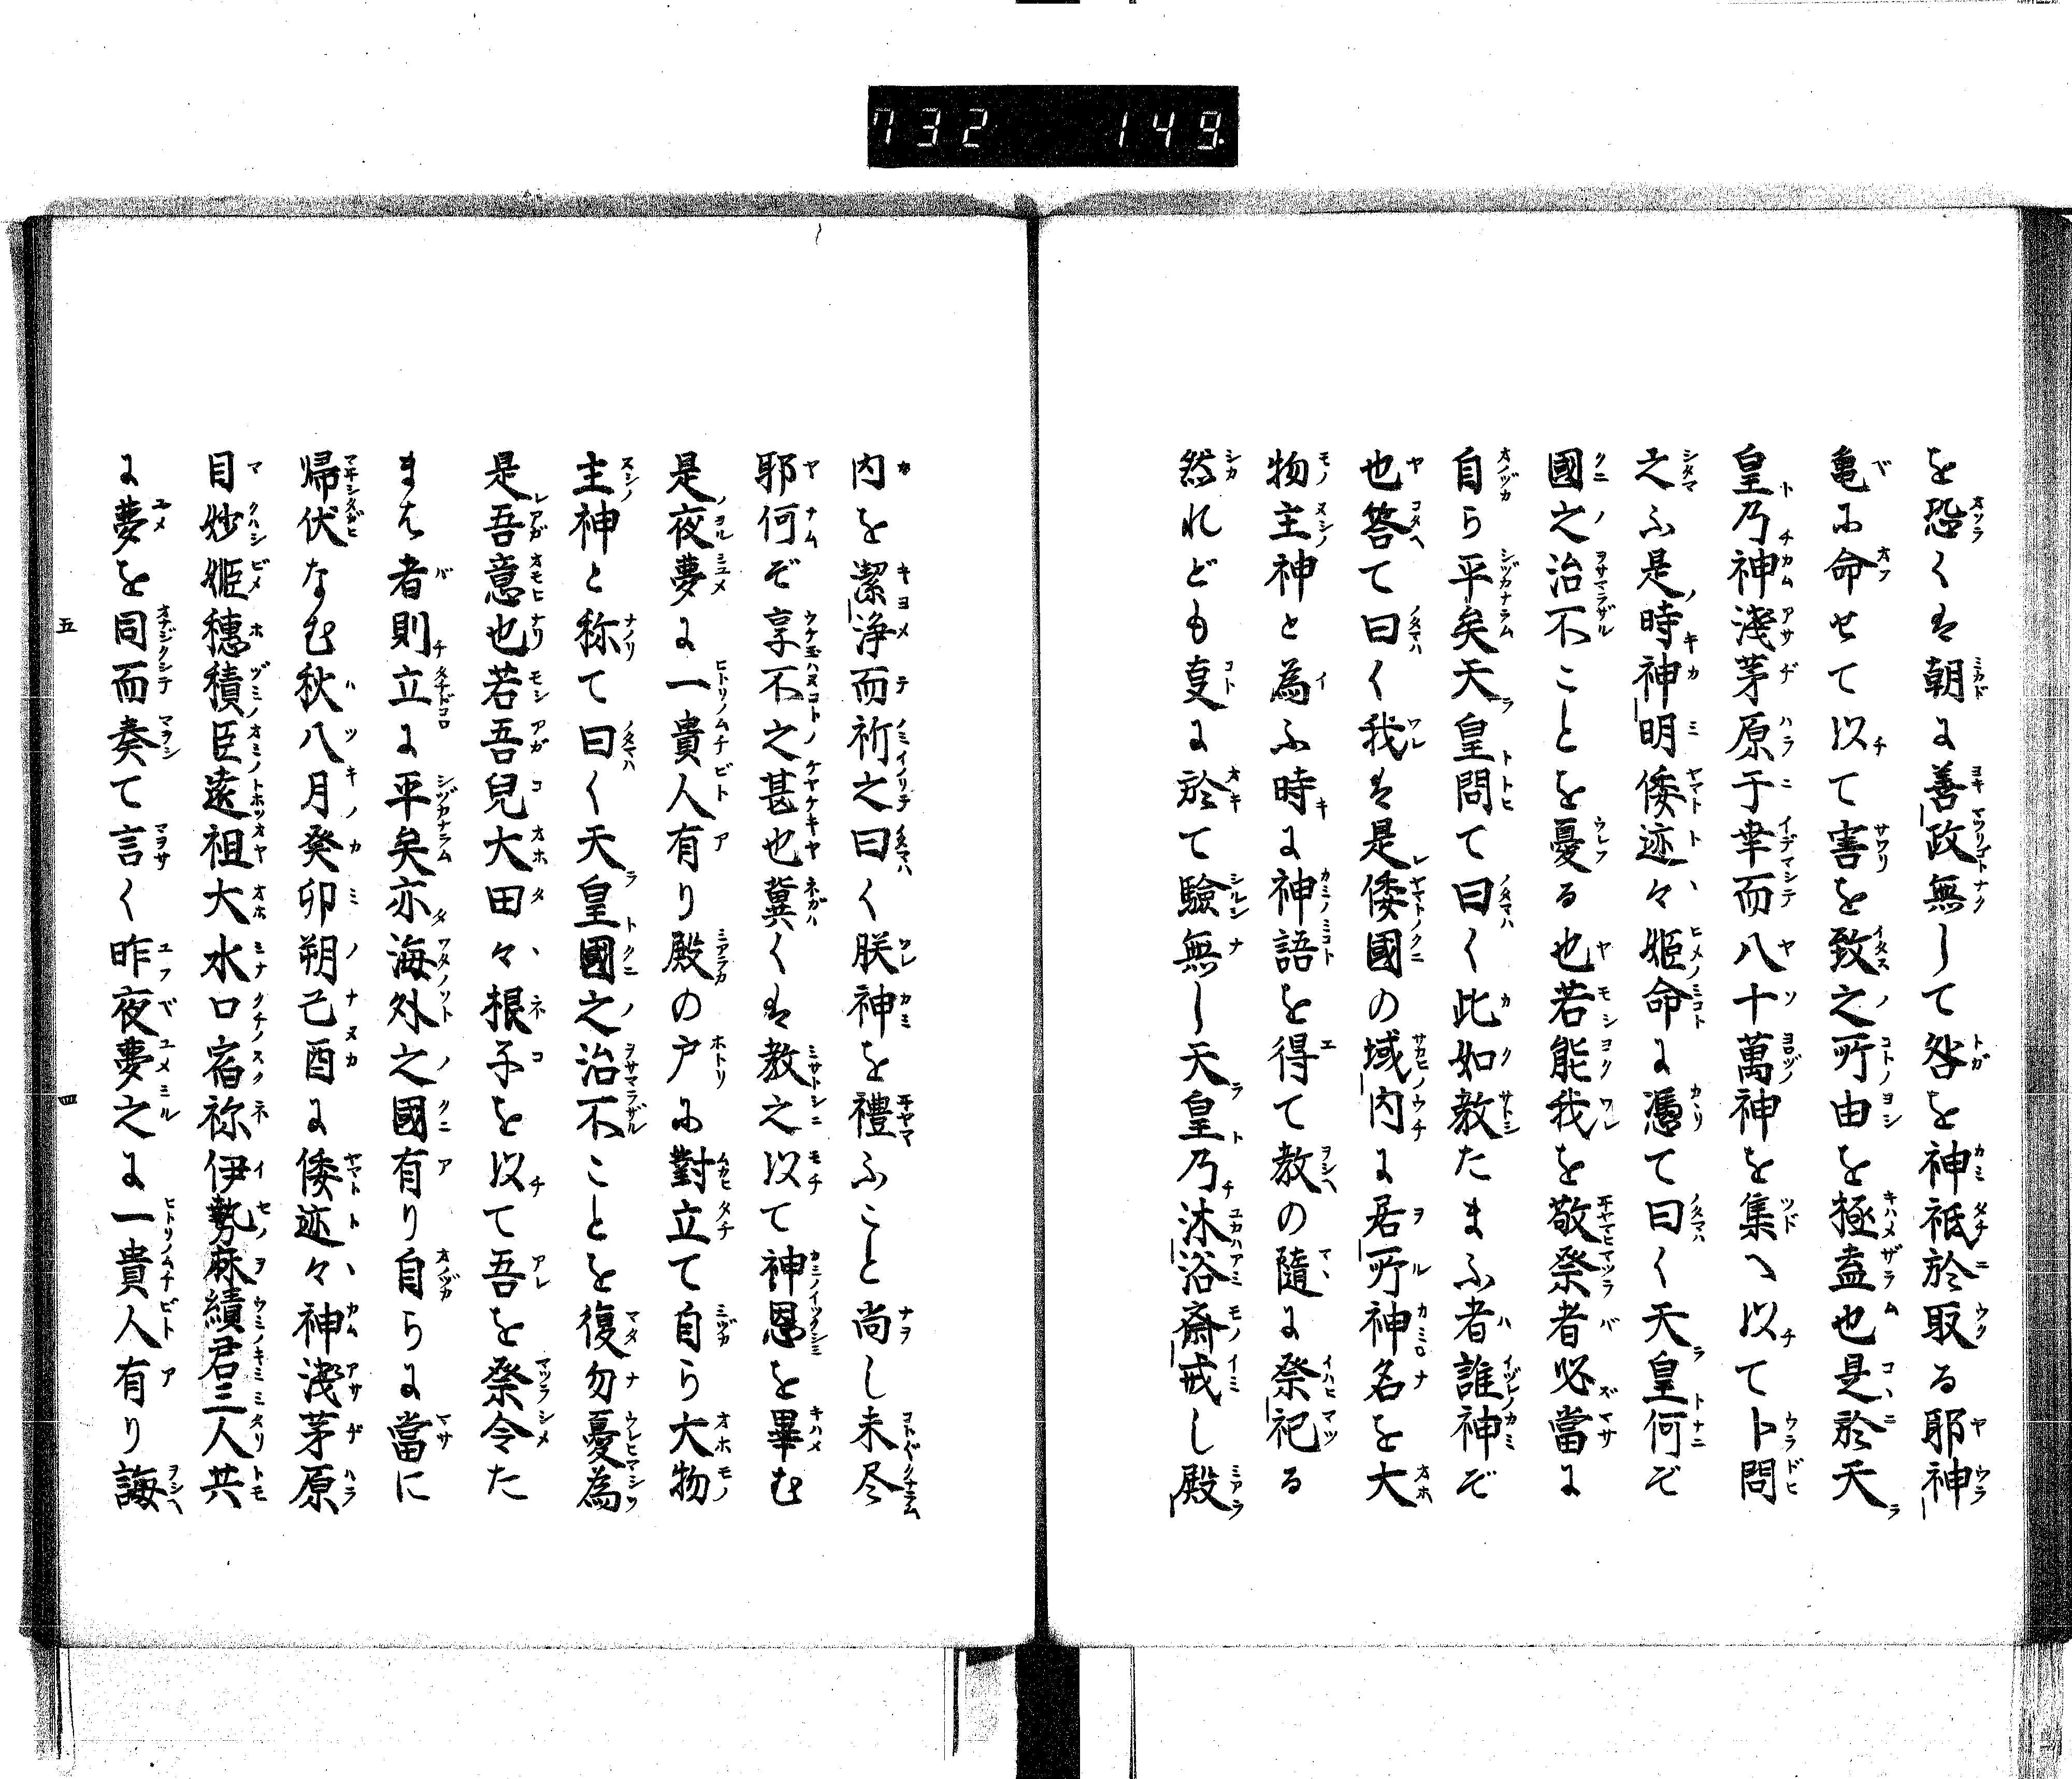 732 149.
を恐くは朝に善政無して咎を神祇於取る耶神
亀に命せて以て害を致之所由を極盍也是於天
皇乃神淺茅原于幸而八十萬神を集へ以て卜問
之ふ是時神明倭迹々姫命に憑て曰く天皇何ぞ
國之治不ことを憂る也若能我を敬祭者必當に
自ら平矣天皇問て曰く此如教たまふ者誰神ぞ
也答て曰く我は是倭國の域内に居所神名を大
物主神と為ふ時に神語を得て教の隨に祭祀る
然れども叓に於て驗無し天皇乃沐浴斎戒し殿
内を潔浄而祈之曰く朕神を禮ふこと尚し未尽
耶何ぞ享不之甚也冀くは教之以て神恩を畢む
是夜夢に一貴人有り殿の戸に對立て自ら大物
主神と称て曰く天皇國之治不ことを復勿憂為
是吾意也若吾兒大田々根子を以て吾を祭令た
まは者則立に平矣亦海外之國有り自らに當に
帰伏なむ秋八月癸卯朔己酉に倭迹々神淺茅原
目妙姫穗積臣遠祖大水口宿祢伊勢麻績君三人共
に夢を同而奏て言く昨夜夢之に一貴人有り誨
五
四